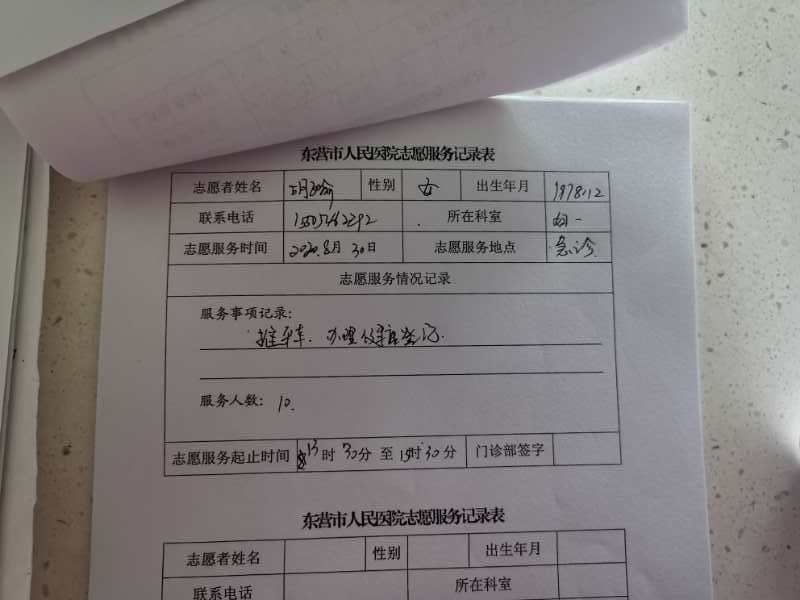 东营市人民医院志愿服务记录表
志愿者姓名 性别 女 出生年月 1978.12
联系电话 所在科室 妇一
志愿服务时间 2020.8月30日 志愿服务地点 急诊
志愿服务情况记录
服务事项记录:
推平车、办理住院登记
服务人数: 10.
志愿服务起止时间 13时30分 至 15时30分 门诊部签字
东营市人民医院志愿服务记录表
志愿者姓名 性别 出生年月
联系电话 所在科室